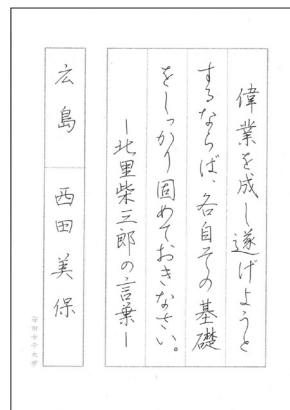 偉業を成し遂げようと
するならば、各自その基礎
をしっかり固めておきなさい。
ー北里柴三郎の言葉ー
広島 西田美保
安田女子大学